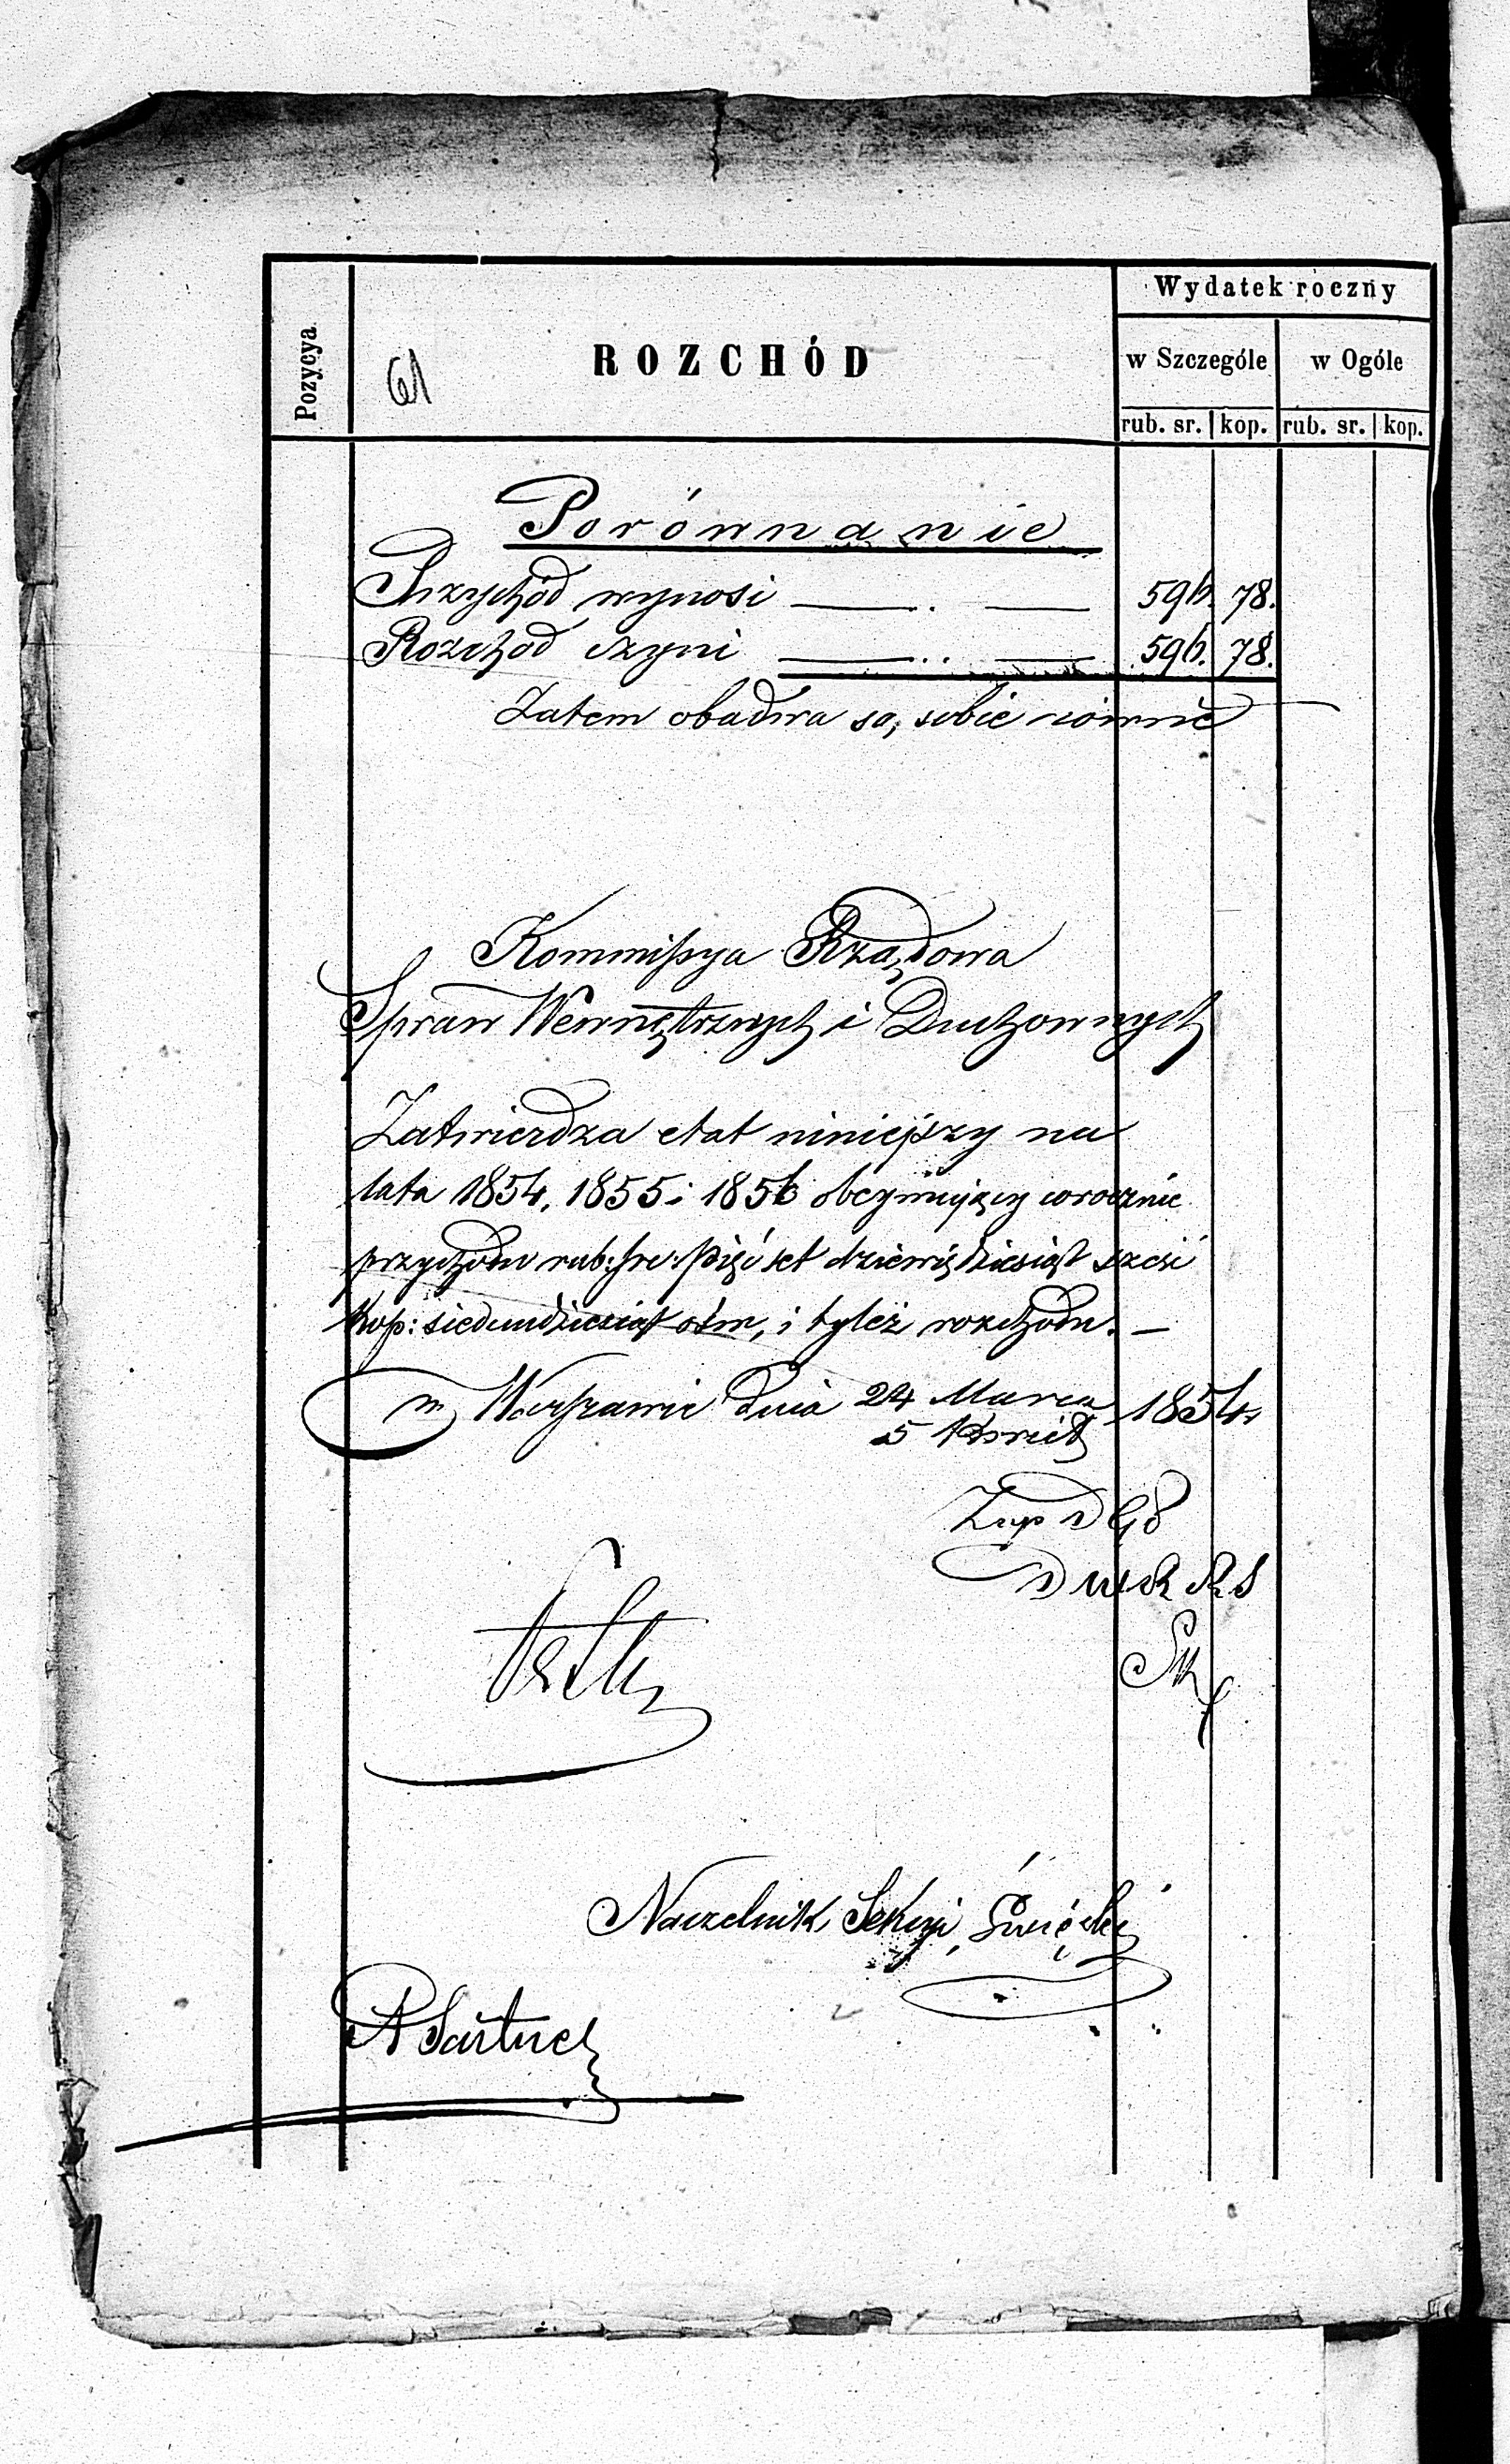 Wydatek roczny
Pozycya
61
ROZCHÓD
w Szczególe w Ogóle
rub. sr. kop. rub. sr. kop.
Porównanie
Przychód wynosi 596. 78.
Rozchód czyni 596. 78.
Zatem obadwa są sobie równe
Kommissya Rządowa
Spraw Wewnętrznych i Duchownych
Zatwierdza etat niniejszy na
lata 1854, 1855 i 1856 obejmujący corocznie
przychodu rub: sre: pięć set dziewiędziesiąt sześć
kop: siedmdziesiąt ośm, i tyleż rozchodu. —
w Warszawie dnia 24 Marca 1854
5 Kwiet
Naczelnik Sekcyi, Święcki